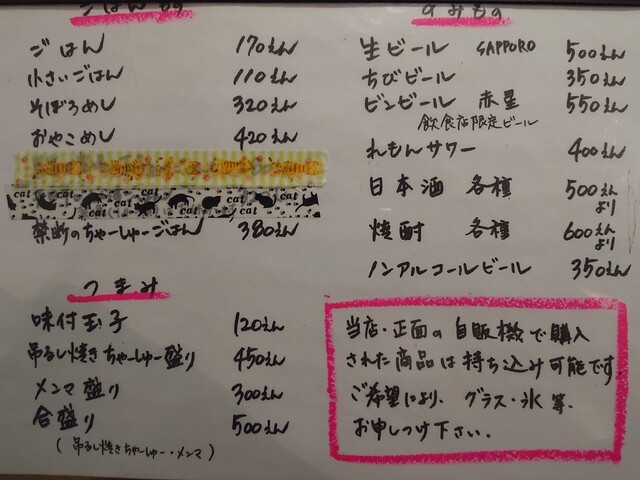 ごはんもの
ごはん 170えん
小さいごはん 110えん
そぼろめし 320えん
おやこめし 420えん
cat cat cat cat cat cat cat
禁断のちゃーしゅーごはん 380えん
つまみ
味付玉子 120えん
吊るし焼きちゃーしゅー盛り 450えん
メンマ盛り 300えん
合盛り 500えん
(吊るし焼きちゃーしゅー・メンマ)
のみもの
生ビール SAPPORO 500えん
ちびビール 350えん
ビンビール 赤星 550えん
飲食店限定ビール
れもんサワー 400えん
日本酒 各種 500えん
より
焼酎 各種 600えん
より
ノンアルコールビール 350えん
当店・正面の自販機で購入
された商品は持ち込み可能です。
ご希望により、グラス・氷等、
お申しつけ下さい。